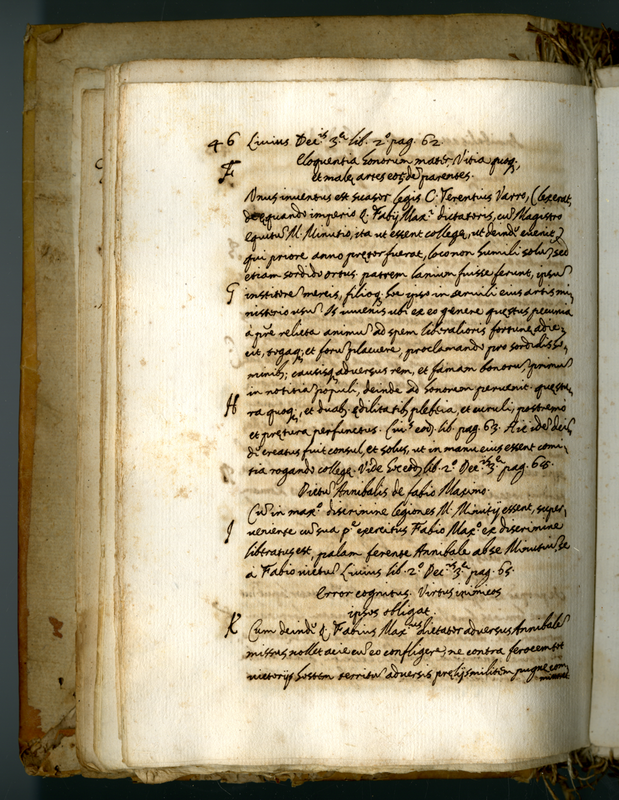 46 Livius Dec.is 3.ae lib. 2.o pag. 62
F Eloquentia honorum mater. Vitia quoq;
et malę artes eor̃de parentes.
Unus inventus est suasor legis C. Terentius Varro, (
deęquando imperio Q. Fabij Max.i dictatoris, cũ Magistro
equitũ M. Minutio, ita ut essent collegę, ut deindẽ evenit)
qui priore anno pręter fuerat, loco non humili solũ, sed
etiam sordido ortus. patrem lanium fuisse ferunt, ipsũ
G institorẽ mercis, filioq; hoc ipso in servili eius artis mi,
nisterio usũ. Is iuvenis ubi ex eo genere quęstus pecunia
à p̃re relicta animũ ad spem liberalioris fortunę adie,
cit, togaq; et forũ placuere, proclamando pro sordidis ho,
minib; causisq; adversus rem, et famam bonorũ primũ
in notitiã populi, deinde ad honorem pervenit. quęstu,
H ra quoq;, et duab; ędilitatib; plebeia, et curuli, postremo
et prętura perfunctus. (Liu.s eod. lib. pag. 63. Hic idẽ dein,
dẽ creatus fuit consul, et solus, ut in manu eius essent comi,
tia rogando collegę. Vide hoc eod. lib. 2.o Dec.is 3.ae pag. 68.
Dictũ Annibalis de Fabio Maximo.
Cũ in max.o discrimine legiones M. Minutij essent, super,
I veniente cũ sua p.e exercitus Fabio Max.o ex discrimine
libratus est, palam ferente Annibale ab se Minutiũ, se
à Fabio victũ Livius lib. 2.o Dec.is 3.ae pag. 65.
Error cognitus. Virtus inimicos
ipsos obligat.
K Cum deindẽ Q. Fabius Max.us dictator adversus Annibalẽ
missus nollet acie cũ eo confligere, ne contra ferocem tot
victorijs hostem territũ adversis pręlijs militem pugnę com,
mitteret